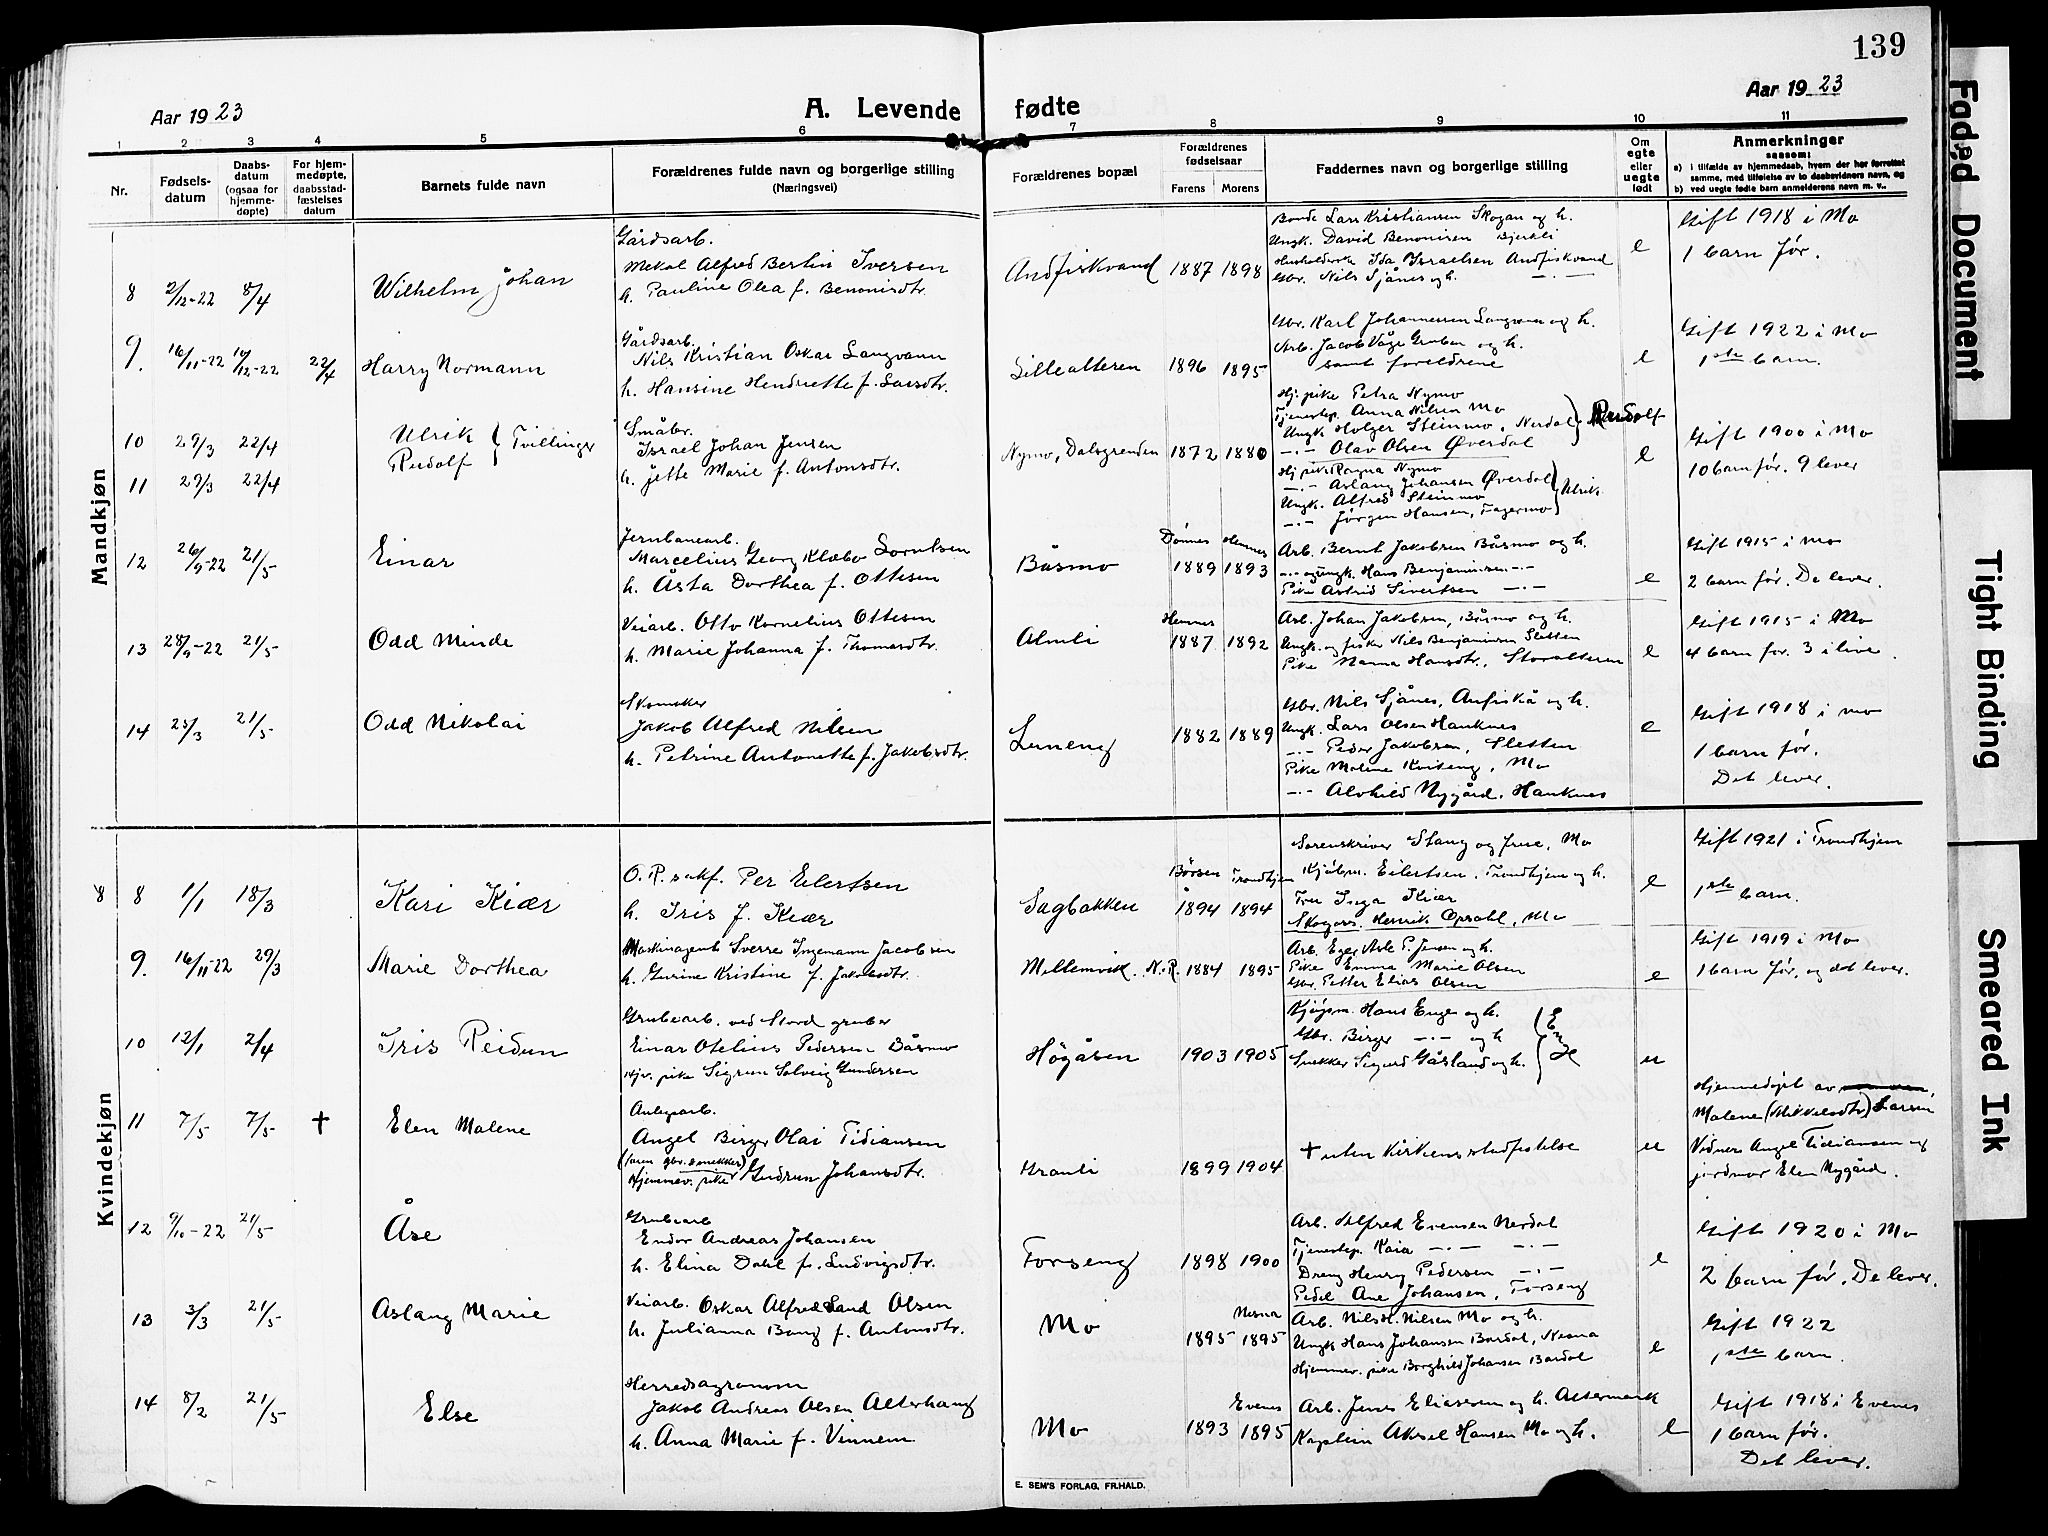 139
Aar 1923
A. Levende fødte
Aar 1923
1 2 3 4 5 6 7 8 9 10 11
Nr.
Fødsels-
datum
Daabs-
datum
(ogsaa for
hjemme-
døpte)
For hjem-
medøpte,
daabsstad-
fæstelses
datum
Barnets fulde navn
Forældrenes fulde navn og borgerlige stilling
(Næringsvei)
Forældrenes bopæl
Forældrenes
fødselsaar
Farens Morens
Faddernes navn og borgerlige stilling
Om
egte
eller
uegte
født
Anmerkninger
saasom:
a) i tilfælde av hjemmedaab, hvem der har forrettet
samme, med tilføielse av to daabsvidners navn, og
b) ved uegte fødte barn anmelderens navn m. v..
Mandkjøn
8 2/12-22 8/4 Wilhelm Johan
Gårdsarb.
Mekal Alfred Bertin Iversen
h. Pauline Olea f. Benonisdtr.
Andfiskvand 1887 1898
Bonde Lars Kristiansen Skogan og h.
Ungk. David Benonisen Bjerkli
Husholderske Ida Israelsen Andfiskvand
Gbr. Nils Sjånes og h. -·-
e
Gift 1918 i Mo
1 barn før.
9. 16/11-22 10/12-22 22/4 Harry Normann
Gårdsarb.
Nils Kristian Oskar Langvann
h. Hansine Hendriette f. Larsdtr.
Lillealteren 1896 1895
Gbr. Karl Johannessen Langvann og h.
Arb. Jacob Våge Gruben og h.
samt foreldrene
e
Gift 1922 i Mo
1ste barn.
10 29/3 22/4 Ulrik } Tvillinger
11 29/3 22/4 Rudolf
Småbr.
Israel Johan Jensen
h. Jette Marie f. Antonsdtr.
Nymo, Dalsgrenden 1872 1880
Hj. pike Petra Nymo
Tjenestep. Anna Nilsen Mo
Ungk Holger Steinmo, Nerdal } Rudolf
-·- Olav Olsen Øverdal
Hj. pike Ragna Nymo
-·- Aslaug Johansen Øverdal } Ulrik
Ungk. Alfred Steinmo
-·- Jørgen Hansen, Fagermo
e
Gift 1900 i Mo
10 barn før. 9 lever
12 26/9-22 21/5 Einar
Jernbanearb.
Marcelius Georg Klæbo Lorntsen
h. Åsta Dorthea f. Ottesen
Båsmo Dønnes 1889 Hemnes 1893
Arb. Bernt Jakobsen Båsmo og h.
-·- og ungk. Hans Benjaminsen -·-
Pike Astrid Sivertsen -·-
e
Gift 1915 i Mo
2 barn før. De lever.
13 28/9-22 21/5 Odd Minde
Veiarb. Otto Kornelius Ottesen
h. Marie Johanna f. Thomasdtr.
Almli Hemnes 1887 1892
Arb. Johan Jakobsen, Båsmo og h.
Ungk. og fisker Nils Benjaminsen Sletten
Pike Nanna Hansdtr. Storalteren
e
Gift 1915 i Mo
4 barn før. 3 i live.
14 25/3 21/5 Odd Nikolai
Skomaker
Jakob Alfred Nilsen
h. Petrine Antonette f. Jakobsdtr.
Luneng 1882 1889
Gbr. Nils Sjånes, Anfiskå og h.
Ungk. Lars Olsen Hauknes
-·- Peder Jakobsen, Sletten
Pike Maline Kviteng, Mo
-·- Alvhild Nygård, Hauknes
e
Gift 1918 i Mo
1 barn før.
Det lever.
Kvindekjøn
8 8 1/1 18/3 Kari Kiær
O. R. sakf. Per Eilertsen
h. Iris f. Kiær
Sagbakken Børsen 1894 Trondhjem 1894
Sorenskriver Stang og frue, Mo
Kjøbm. Eilertsen, Trondhjem og h.
Fru Inga Kiær
Skogass. Henrik Opsahl, Mo
e
Gift 1921 i Trondhjem
1ste barn.
9. 16/11-22 29/3 Marie Dorthea
Maskinagent Sverre Ingemann Jacobsen
h. Gurine Kristine f. Jakobsdtr.
Mellemvik. N.R. 1884 1895
Arb. Eger Asle P. Jensen og h.
Pike Emma Marie Olsen
Gbr. Petter Elias Olsen
e
Gift 1919 i Mo
1 barn før, og det lever.
10 12/1 2/4 Iris Reidun
Grubearb. ved Stord gruber
Einar Otelius Pedersen Båsmo
Hjv. pike Sigrun Solveig Gundersen
Høgåsen 1903 1905
Kjøpm. Hans Enge og h.
Gbr. Birger -·- og h
Snekker Sigurd Gåsland og h.
u
11 7/5 7/5 † Elen Malene
Anlegsarb.
Angel Birger Olai Tidiansen
(faren gbr. snekker)
Hjemmev. pike Gudrun Johansdtr.
Granli 1899 1904
† uten kirkens stadfestelse
u
Hjemmedøpt av
Malene (Mikkelsdtr) Larsen
Vidner Angel Tidiansen og
jordmor Elen Nygård.
12 9/10-22 21/5 Åse
Grubearb
Endor Andreas Johansen
h. Elina Dahl f. Ludvigsdtr.
Forseng 1898 1900
Arb. Alfred Evensen Nerdal
Tjenestep. Kaia -·- -·-
Dreng Henry Pedersen -·-
Pedel Ane Johansen, Forseng
e
Gift 1920 i Mo
2 barn før. De lever.
13 3/3 21/5 Aslaug Marie
Veiarb. Oskar Alfred Sand Olsen
h. Julianna Bang f. Antonsdtr.
Mo 1895 Nesna 1895
Arb. Nils H. Nilsen Mo og h.
Ungk Hans Johansen Bardal, Nesna
Hjemmev. pike Borghild Johansen Bardal
e
Gift 1922
1ste barn.
14 8/2 21/5 Else
Herredsagronom
Jakob Andreas Olsen Alterhaug
h. Anna Marie f. Vinnem
Mo 1893 Evenes 1895
Arb. Jens Eliassen og h. Altermark
Kaptein Aksel Hansen Mo og h.
e
Gift 1918 i Evenes
1 barn før.
Det lever.
E. SEM'S FORLAG, FR.HALD.
Faded Document
Tight Binding
Smeared Ink